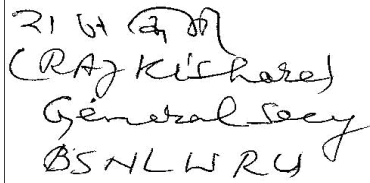 राज कि
(RAJ Kishore)
General Secy
BSNLWRU